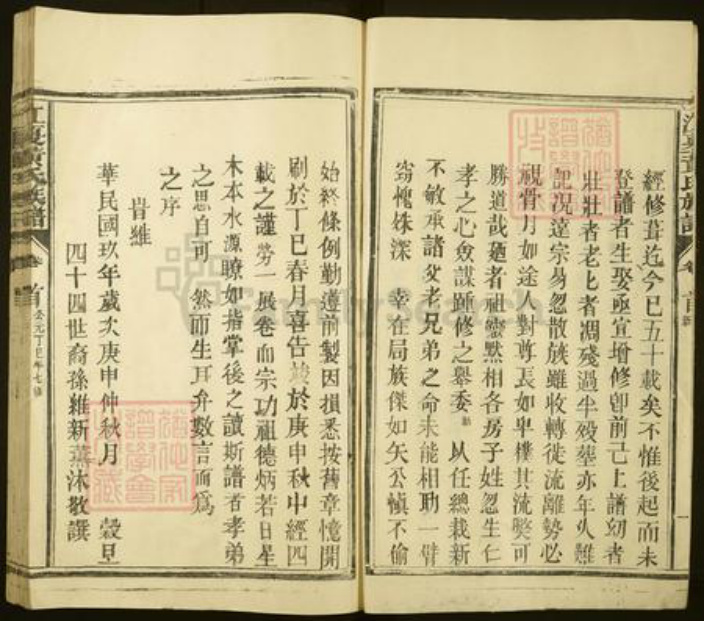 經修葺迄今已五十載矣不惟後起而未
登譜者生娶亟宜增修卽前已上譜幼者
壯壯者老老者凋殘過半歿塟亦年久難
記况達宗易忽散族雖收轉徙流離勢必
視骨月如途人對尊長如卑樸其流獘可
勝道哉廼者祖靈默相各房子姓忽生仁
孝之心僉謀踵修之舉委新以任總裁新
不敏承諸父老兄弟之命未能相助一臂
窃愧殊深 幸在局族傑如矢公愼不偷
始終條例勤遵前製因損悉按舊章憶開
刷於丁巳春月喜告竣於庚申秋中經四
載之謹勞一展卷而宗功祖德炳若日星
木本水源瞭如指掌後之讀斯譜者孝弟
之思自可 然而生耳弁數言而爲
之序
旹維
華民國玖年歲次庚申仲秋月 穀旦
四十四世裔孫維新薰沐敬譔
江夏黃氏族譜 卷首 公元丁巳年七修